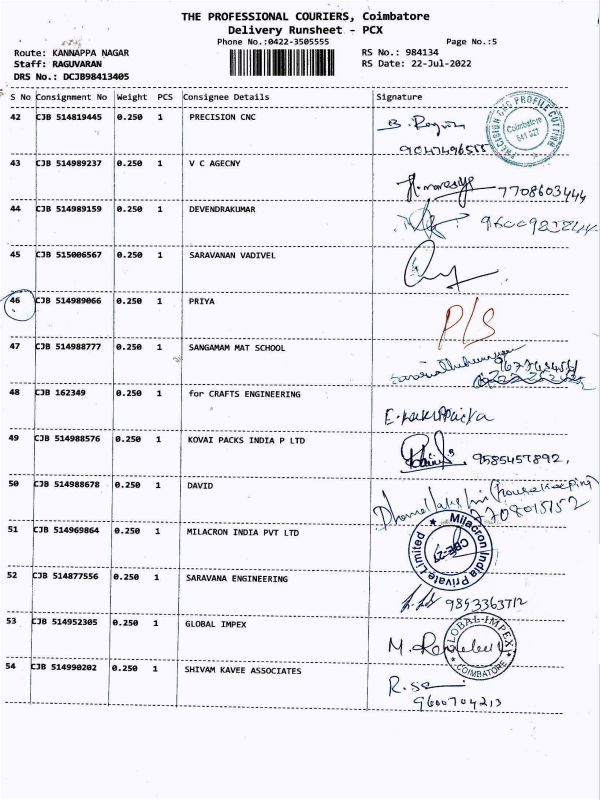 THE PROFESSIONAL COURIERS, Coimbatore
Delivery Runsheet - PCX
Phone No.:0422-3505555 Page No.:5
Route: KANNAPPA NAGAR RS No.: 984134
Staff: RAGUVARAN RS Date: 22-Jul-2022
DRS No.: DCJB98413405
S No Consignment No Weight PCS Consignee Details Signature
42 CJB 514819445 0.250 1 PRECISION CNC
PRECISION CNC PROFILE CUTTING
Coimbatore
641 027
9047496555
43 CJB 514989237 0.250 1 V C AGECNY
7708603444
44 CJB 514989159 0.250 1 DEVENDRAKUMAR
45 CJB 515006567 0.250 1 SARAVANAN VADIVEL
46 CJB 514989066 0.250 1 PRIYA
P/S
47 CJB 514988777 0.250 1 SANGAMAM MAT SCHOOL
48 CJB 162349 0.250 1 for CRAFTS ENGINEERING
49 CJB 514988576 0.250 1 KOVAI PACKS INDIA P LTD
9585457892.
50 CJB 514988678 0.250 1 DAVID
(housekeeping)
2708015152
51 CJB 514969864 0.250 1 MILACRON INDIA PVT LTD
Milacron India Private Limited
CBE-27
52 CJB 514877556 0.250 1 SARAVANA ENGINEERING
9853363712
53 CJB 514952305 0.250 1 GLOBAL IMPEX
GLOBAL-IMPEX
COIMBATORE
54 CJB 514990202 0.250 1 SHIVAM KAVEE ASSOCIATES
9600704213